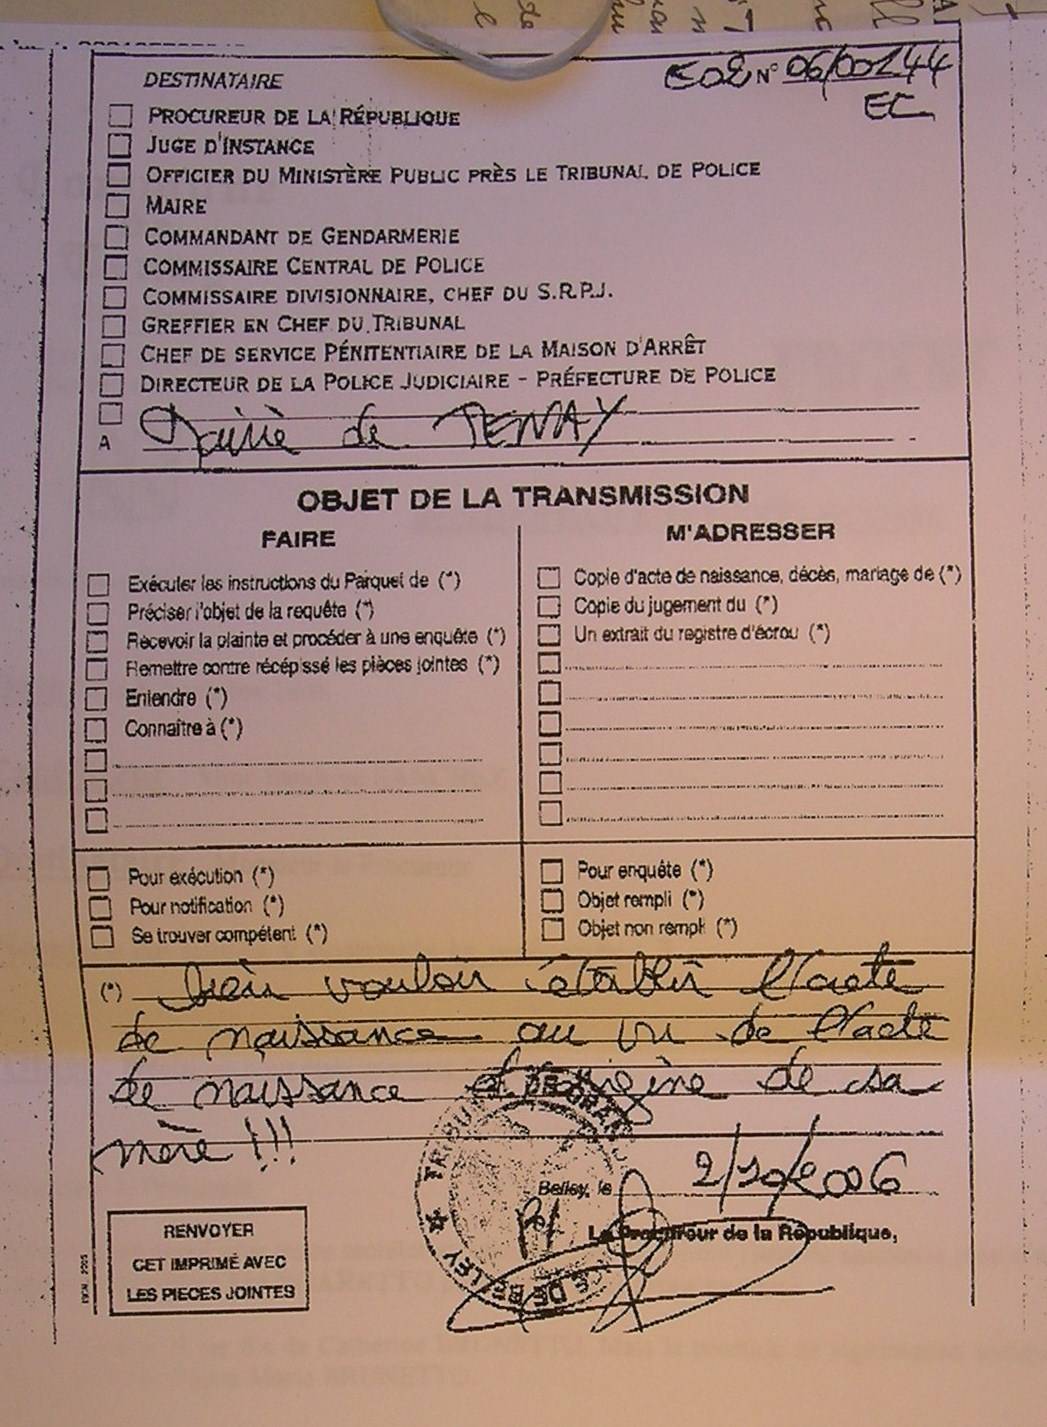 DESTINATAIRE
N° 06/00244
EC
PROCUREUR DE LA RÉPUBLIQUE
JUGE D'INSTANCE
OFFICIER DU MINISTÈRE PUBLIC PRÈS LE TRIBUNAL DE POLICE
MAIRE
COMMANDANT DE GENDARMERIE
COMMISSAIRE CENTRAL DE POLICE
COMMISSAIRE DIVISIONNAIRE, CHEF DU S.R.P.J.
GREFFIER EN CHEF DU TRIBUNAL
CHEF DE SERVICE PÉNITENTIAIRE DE LA MAISON D'ARRÊT
DIRECTEUR DE LA POLICE JUDICIAIRE - PRÉFECTURE DE POLICE
A Mairie de TENAY
OBJET DE LA TRANSMISSION
FAIRE
Exécuter les instructions du Parquet de (*)
Préciser l'objet de la requête (*)
Recevoir la plainte et procéder à une enquête (*)
Remettre contre récépissé les pièces jointes (*)
Entendre (*)
Connaître à (*)
M'ADRESSER
Copie d'acte de naissance, décès, mariage de (*)
Copie du jugement du (*)
Un extrait du registre d'écrou (*)
Pour exécution (*)
Pour notification (*)
Se trouver compétent (*)
Pour enquête (*)
Objet rempli (*)
Objet non rempli (*)
(*) bien vouloir établir l'acte
de naissance au vu de l'acte
de naissance d'origine de sa
mère !!!
Belley, le 2/10/2006
Le Procureur de la République,
TRIBUNAL DE GRANDE
DE BELLEY
RENVOYER
CET IMPRIMÉ AVEC
LES PIECES JOINTES